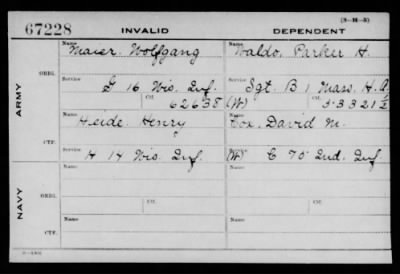 (3-M-3)
67228 INVALID DEPENDENT
Name Name
Maier, Wolfgang Waldo, Parker H.
ORIG. Service Service
G 16 Wis. Inf. Sgt. B 1 Mass. H. A.
ARMY Ctf. Ctf.
62638 (W) 533212
Name Name
Heide Henry Cox, David M.
CTF. Service Service
H 14 Wis. Inf. (W) C 70 Ind. Inf.
Name Name
ORIG.
NAVY Ctf. Ctf.
Name Name
CTF.